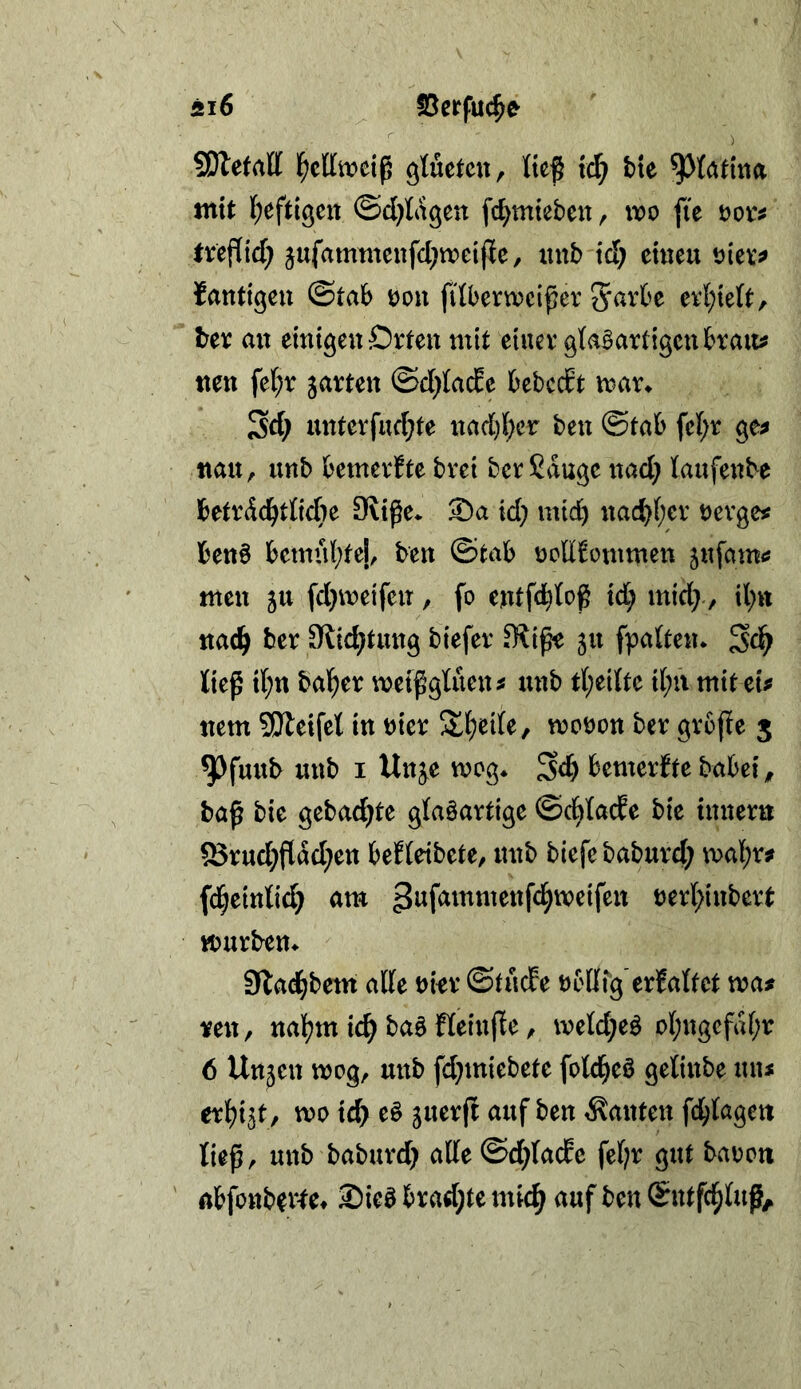 216 Versuche
Metall hellweiß glüeten, ließ ich die Platina
mit heftigen Schlägen schmieden, wo sie vor-
treflich zusammenschweißte, und ich einen vier-
kantigen Stab von silberweißer Farbe erhielt,
der an einigen Orten mit einer glasartigen brau-
nen sehr zarten Schlacke bedeckt war.
Ich untersuchte nachher den Stab sehr ge-
nau, und bemerkte drei der Länge nach laufende
beträchtliche Riße. Da ich mich nachher verge-
bens bemühte, den Stab vollkommen zusam-
men zu schweisen, so entschloß ich mich, ihn
nach der Richtung dieser Riße zu spalten. Ich
ließ ihn daher weißglüen- und theilte ihn mit ei-
nem Meisel in vier Theile, wovon der größte 3
Pfund und 1 Unze wog. Ich bemerkte dabei,
daß die gedachte glasartige Schlacke die innern
Bruchflächen bekleidete, und diese dadurch wahr-
scheinlich am Zusammenschweisen verhindert
wurden.
Nachdem alle vier Stücke völlig erkaltet wa-
ren, nahm ich das kleinste, welches ohngefähr
6 Unzen wog, und schmiedete solches gelinde un-
erhizt, wo ich es zuerst auf den Kanten schlagen
ließ, und dadurch alle Schlacke sehr gut davon
absonderte. Dies brachte mich auf den Entschluß,